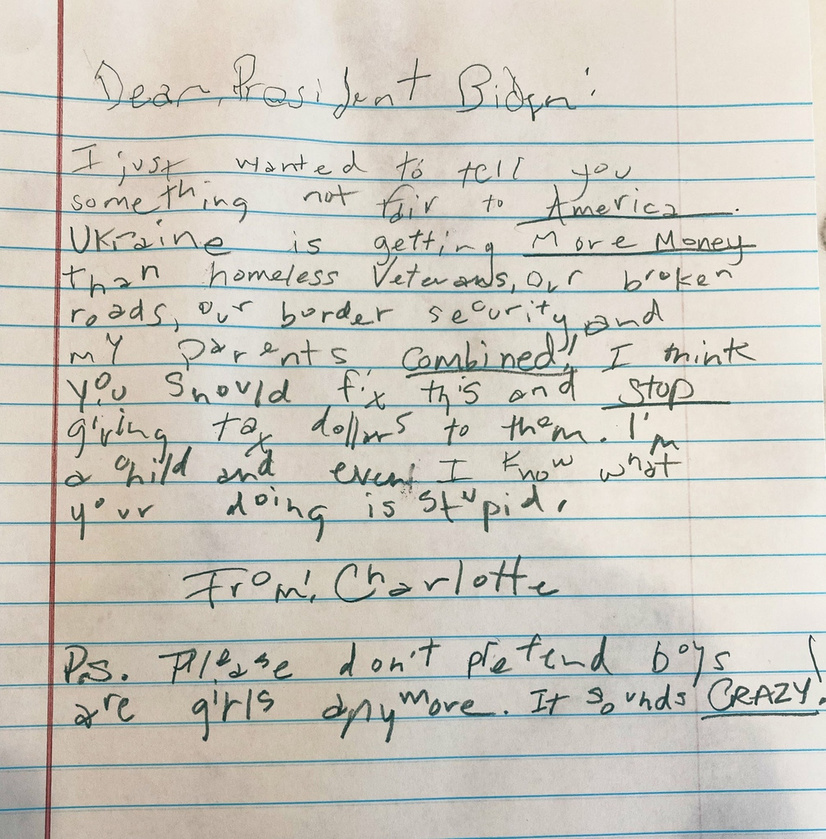 Dear, President Biden:
I just wanted to tell you
something not fair to America.
Ukraine is getting More Money
than homeless Veterans, our broken
roads, our border security, and
my parents combined!! I think
you should fix this and stop
giving tax dollars to them. I'm
a child and even I know what
your doing is stupid.
From, Charlotte
P.s. Please don't pretend boys
are girls anymore. It sounds CRAZY!